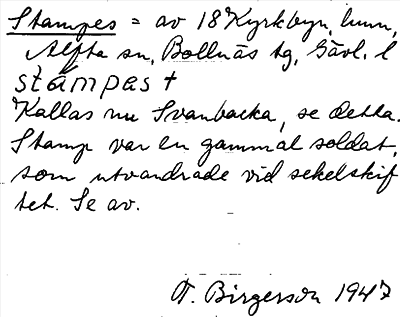 Stampes = av 18 Kyrkbyn, hmn,
Alfta sn, Bollnäs tg, Gävl. l
stámpas +
Kallas nu Svanbacka, se detta.
Stamp var en gammal soldat,
som utvandrade vid sekelskif
tet. Se av.
A. Birgerson 1947